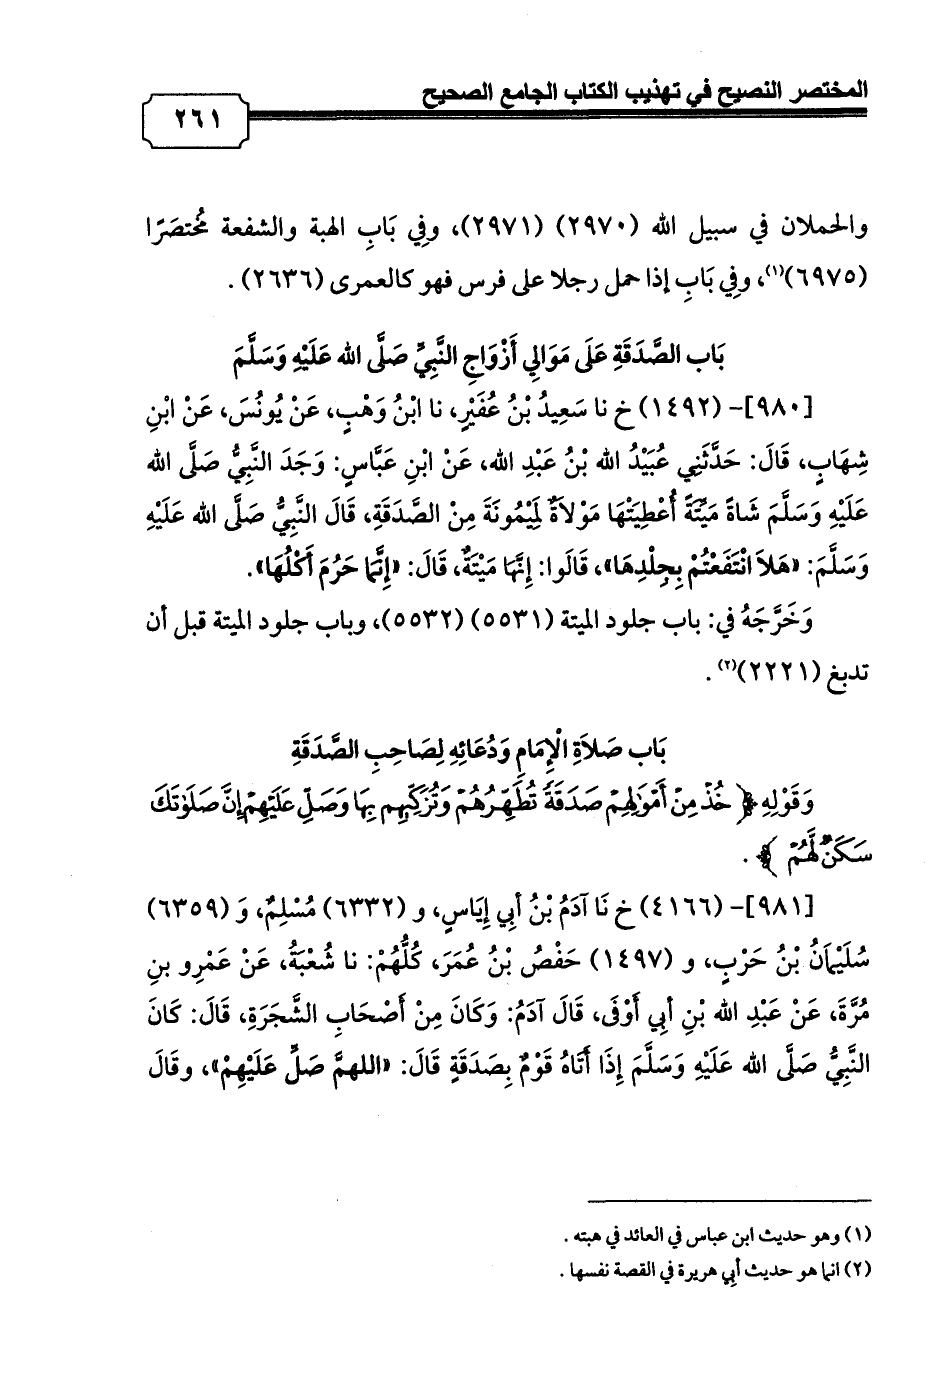 المختصر النصيح في تهذيب الكتاب الجامع الصحيح
٢٦١
والحملان في سبيل الله (٢٩٧٠) (٢٩٧١)، وفِي بَابِ الهبة والشفعة مُختصَرًا
(٦٩٧٥)(١)، وفِي بَابِ إذا حمل رجلا على فرس فهو كالعمرى (٢٦٣٦) .
بَاب الصَّدَقَةِ عَلَى مَوَالِي أَزْوَاجِ النَّبِيِّ صَلَّى الله عَلَيْهِ وَسَلَّمَ
[٩٨٠]- (١٤٩٢) خ نا سَعِيدُ بْنُ عُفَيْرٍ، نا ابْنُ وَهْبٍ، عَنْ يُونُسَ، عَنْ ابْنِ
شِهَابٍ، قَالَ: حَدَّثَنِي عُبَيْدُ الله بْنُ عَبْدِ الله، عَنْ ابْنِ عَبَّاسٍ: وَجَدَ النَّبِيُّ صَلَّى الله
عَلَيْهِ وَسَلَّمَ شَاةً مَيِّتَةً أُعْطِيَتْهَا مَوْلَاةٌ لِمَيْمُونَةَ مِنْ الصَّدَقَةِ، قَالَ النَّبِيُّ صَلَّى الله عَلَيْهِ
وَسَلَّمَ: «هَلاَ انْتَفَعْتُمْ بِجِلْدِهَا»، قَالُوا: إِنَّهَا مَيْتَةٌ، قَالَ: «إِنَّمَا حَرُمَ أَكْلُهَا».
وَخَرَّجَهُ في: باب جلود الميتة (٥٥٣١) (٥٥٣٢)، وباب جلود الميتة قبل أن
تدبغ (٢٢٢١)(٢) .
بَاب صَلاَةِ الْإِمَامِ وَدُعَائِهِ لِصَاحِبِ الصَّدَقَةِ
وَقَوْلِهِ ﴿ خُذْ مِنْ أَمْوَٰلِهِمْ صَدَقَةً تُطَهِّرُهُمْ وَتُزَكِّيهِم بِهَا وَصَلِّ عَلَيْهِمْ إِنَّ صَلَوٰتَكَ
سَكَنٌ لَّهُمْ ﴾ .
[٩٨١]- (٤١٦٦) خ نَا آدَمُ بْنُ أبِي إِيَاسٍ، و (٦٣٣٢) مُسْلِمٌ، وَ (٦٣٥٩)
سُلَيْمَانُ بْنُ حَرْبٍ، و (١٤٩٧) حَفْصُ بْنُ عُمَرَ، كُلُّهُمْ: نا شُعْبَةُ، عَنْ عَمْرِو بنِ
مُرَّةَ، عَنْ عَبْدِ الله بْنِ أبِي أَوْفَى، قَالَ آدَمُ: وَكَانَ مِنْ أَصْحَابِ الشَّجَرَةِ، قَالَ: كَانَ
النَّبِيُّ صَلَّى الله عَلَيْهِ وَسَلَّمَ إِذَا أَتَاهُ قَوْمٌ بِصَدَقَةٍ قَالَ: «اللهمَّ صَلِّ عَلَيْهِمْ»، وقَالَ
(١) وهو حديث ابن عباس في العائد في هبته .
(٢) انما هو حديث أبِي هريرة في القصة نفسها .